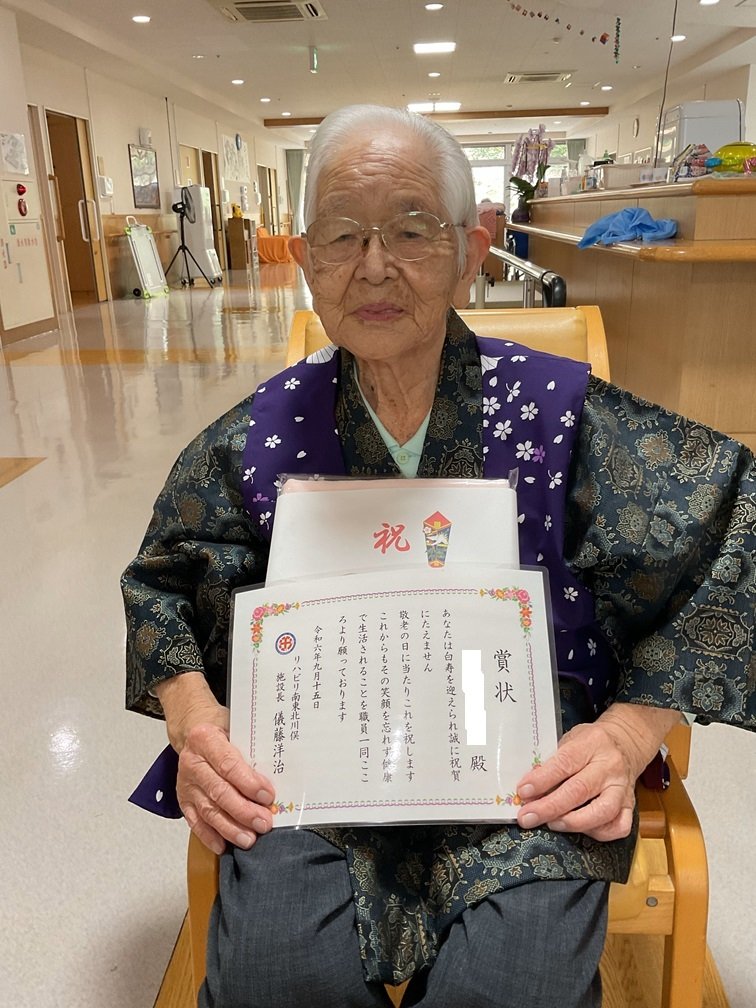 祝
賞状
殿
あなたは白寿を迎えられ誠に祝賀
にたえません
敬老の日に当たりこれを祝します
これからもその笑顔を忘れず健康
で生活されることを職員一同ここ
ろより願っております
令和六年九月十五日
リハビリ南東北川俣
施設長 儀藤洋治